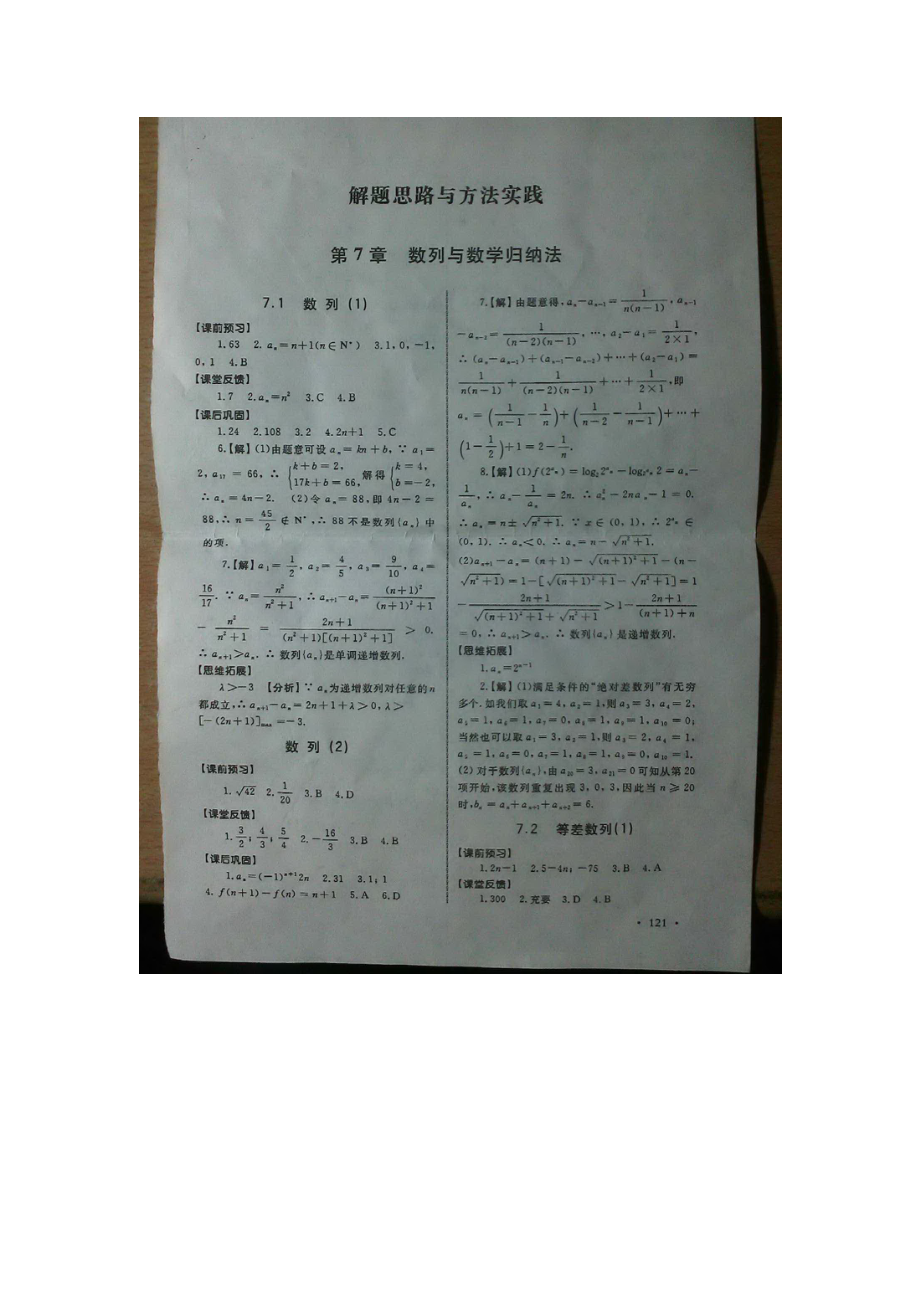 解题思路与方法实践
第 7 章 数列与数学归纳法
7.1 数 列 (1)
【课前预习】
1.63 2. aₙ=n+1(n∈N*) 3.1,0,-1,
0,1 4.B
【课堂反馈】
1.7 2.aₙ=n² 3.C 4.B
【课后巩固】
1.24 2.108 3.2 4.2n+1 5.C
6.【解】(1)由题意可设 aₙ=kn+b,∵ a₁=
2,a₁₇=66,∴ {k+b=2, 17k+b=66, 解得 {k=4, b=-2,
∴ aₙ=4n-2. (2)令 aₙ=88,即 4n-2=
88,∴ n=45/2∉N*,∴ 88 不是数列{aₙ}中
的项.
7.【解】a₁=1/2,a₂=4/5,a₃=9/10,a₄=
16/17.∵ aₙ=n²/(n²+1),∴ aₙ₊₁-aₙ=(n+1)²/((n+1)²+1)
-n²/(n²+1)=(2n+1)/((n²+1)[(n+1)²+1])>0.
∴ aₙ₊₁>aₙ.∴ 数列{aₙ}是单调递增数列.
【思维拓展】
λ>-3 【分析】∵ aₙ为递增数列对任意的n
都成立,∴ aₙ₊₁-aₙ=2n+1+λ>0,λ>
[-(2n+1)]max=-3.
数 列 (2)
【课前预习】
1. √42 2. 1/20 3.B 4.D
【课堂反馈】
1. 3/2;4/3;5/4 2.-16/3 3.B 4.B
【课后巩固】
1.aₙ=(-1)ⁿ⁺¹2n 2.31 3.1;1
4. f(n+1)-f(n)=n+1 5.A 6.D
7.【解】由题意得,aₙ-aₙ₋₁=1/(n(n-1)),aₙ₋₁
-aₙ₋₂=1/((n-2)(n-1)),…,a₂-a₁=1/(2×1),
∴ (aₙ-aₙ₋₁)+(aₙ₋₁-aₙ₋₂)+…+(a₂-a₁)=
1/(n(n-1))+1/((n-2)(n-1))+…+1/(2×1),即
aₙ=(1/(n-1)-1/n)+(1/(n-2)-1/(n-1))+…+
(1-1/2)+1=2-1/n.
8.【解】(1)f(2^aₙ)=log₂2^aₙ-log_(2^aₙ)2=aₙ-
1/aₙ,∴ aₙ-1/aₙ=2n.∴ aₙ²-2naₙ-1=0.
∴ aₙ=n±√(n²+1).∵ x∈(0,1),∴ 2^aₙ∈
(0,1).∴ aₙ<0.∴ aₙ=n-√(n²+1).
(2)aₙ₊₁-aₙ=(n+1)-√((n+1)²+1)-(n-
√(n²+1))=1-[√((n+1)²+1)-√(n²+1)]=1
-(2n+1)/(√((n+1)²+1)+√(n²+1))>1-(2n+1)/((n+1)+n)
=0,∴ aₙ₊₁>aₙ.∴ 数列{aₙ}是递增数列.
【思维拓展】
1.aₙ=2ⁿ⁻¹
2.【解】(1)满足条件的“绝对差数列”有无穷
多个.如我们取 a₁=4,a₂=1,则 a₃=3,a₄=2,
a₅=1,a₆=1,a₇=0,a₈=1,a₉=1,a₁₀=0;
当然也可以取 a₁=3,a₂=1,则 a₃=2,a₄=1,
a₅=1,a₆=0,a₇=1,a₈=1,a₉=0,a₁₀=1.
(2)对于数列{aₙ},由 a₂₀=3,a₂₁=0 可知从第 20
项开始,该数列重复出现 3,0,3,因此当 n≥20
时,bₙ=aₙ+aₙ₊₁+aₙ₊₂=6.
7.2 等差数列(1)
【课前预习】
1.2n-1 2.5-4n;-75 3.B 4.A
【课堂反馈】
1.300 2.充要 3.D 4.B
· 121 ·